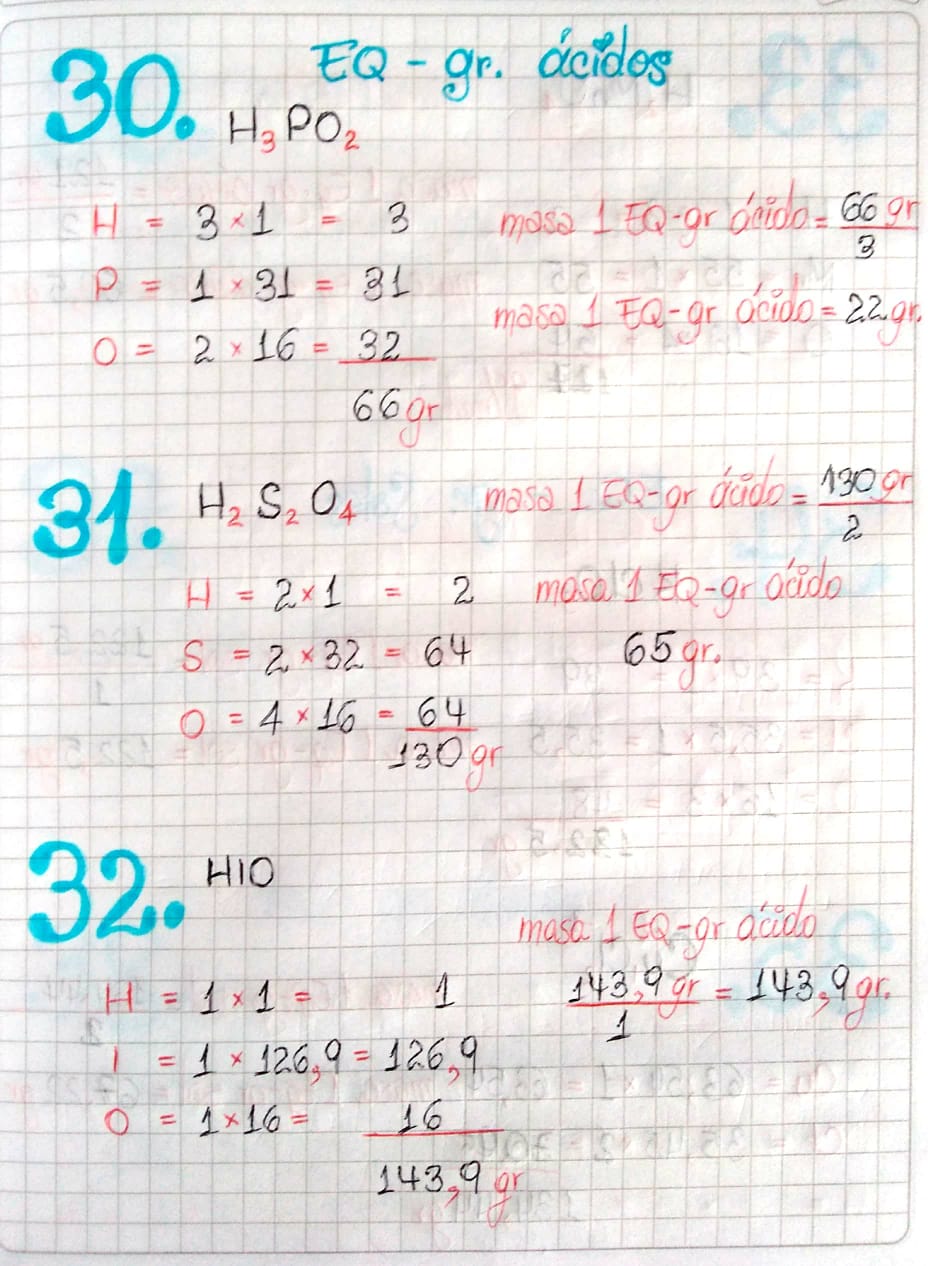 EQ - gr. ácidos
30. H₃PO₂
H = 3 × 1 = 3 masa 1 EQ-gr ácido = 66 gr / 3
P = 1 × 31 = 31
masa 1 EQ-gr ácido = 22 gr.
O = 2 × 16 = 32
66 gr
31. H₂S₂O₄ masa 1 EQ-gr ácido = 130 gr / 2
H = 2 × 1 = 2 masa 1 EQ-gr ácido
S = 2 × 32 = 64 65 gr.
O = 4 × 16 = 64
130 gr
32. HIO
masa 1 EQ-gr ácido
H = 1 × 1 = 1 143,9 gr / 1 = 143,9 gr.
I = 1 × 126,9 = 126,9
O = 1 × 16 = 16
143,9 gr